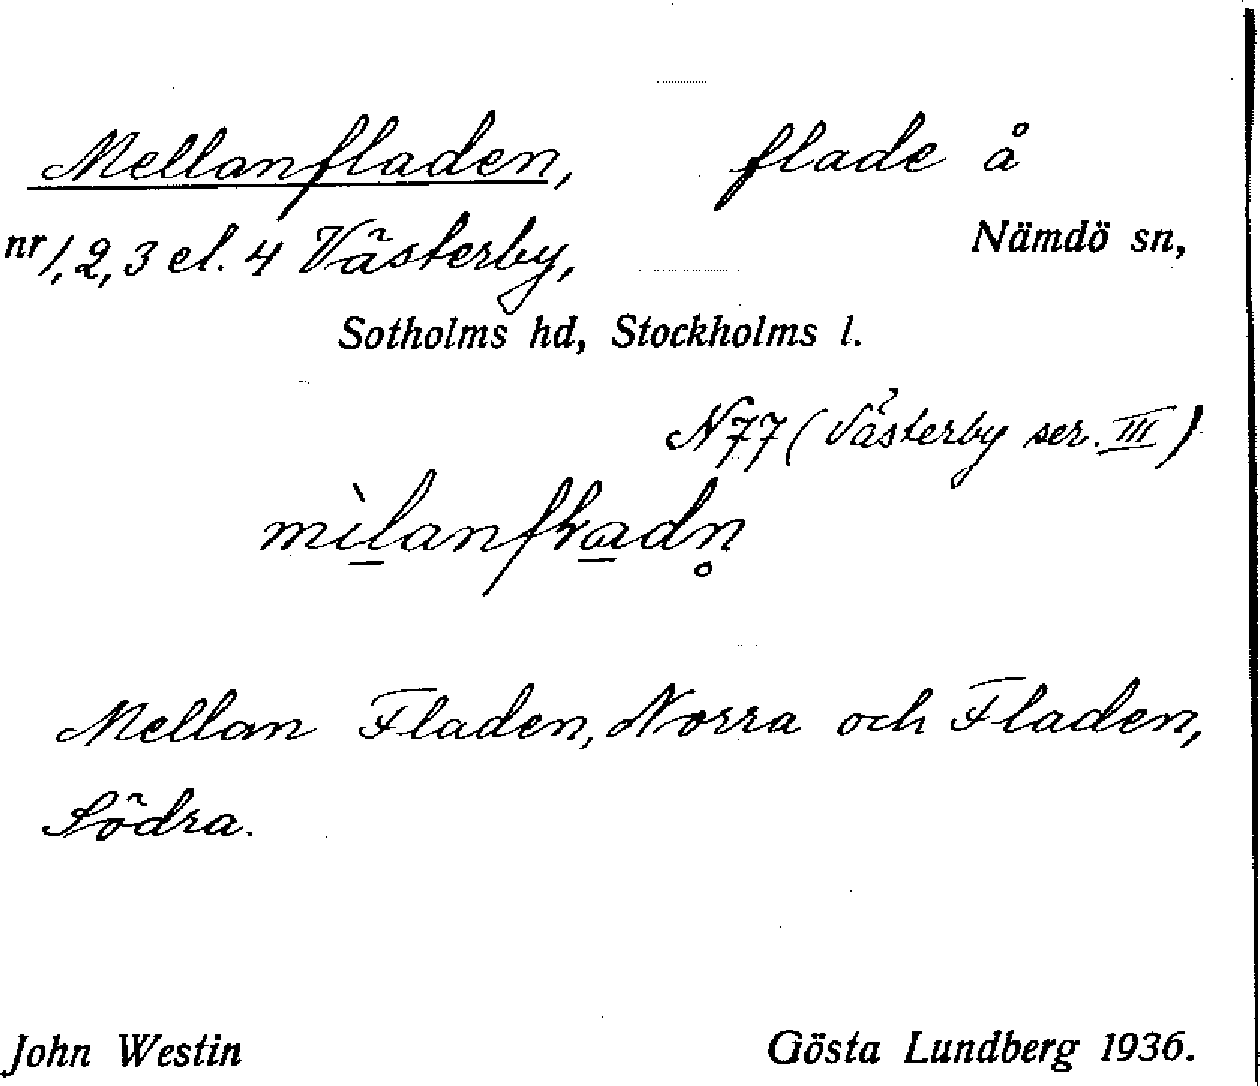 Mellanfladen, flade å
nr 1, 2, 3 el. 4 Västerby, Nämdö sn,
Sotholms hd, Stockholms l.
N77 (Västerby ser. III)
Mellan Fladen, Norra och Fladen,
Södra.
John Westin Gösta Lundberg 1936.